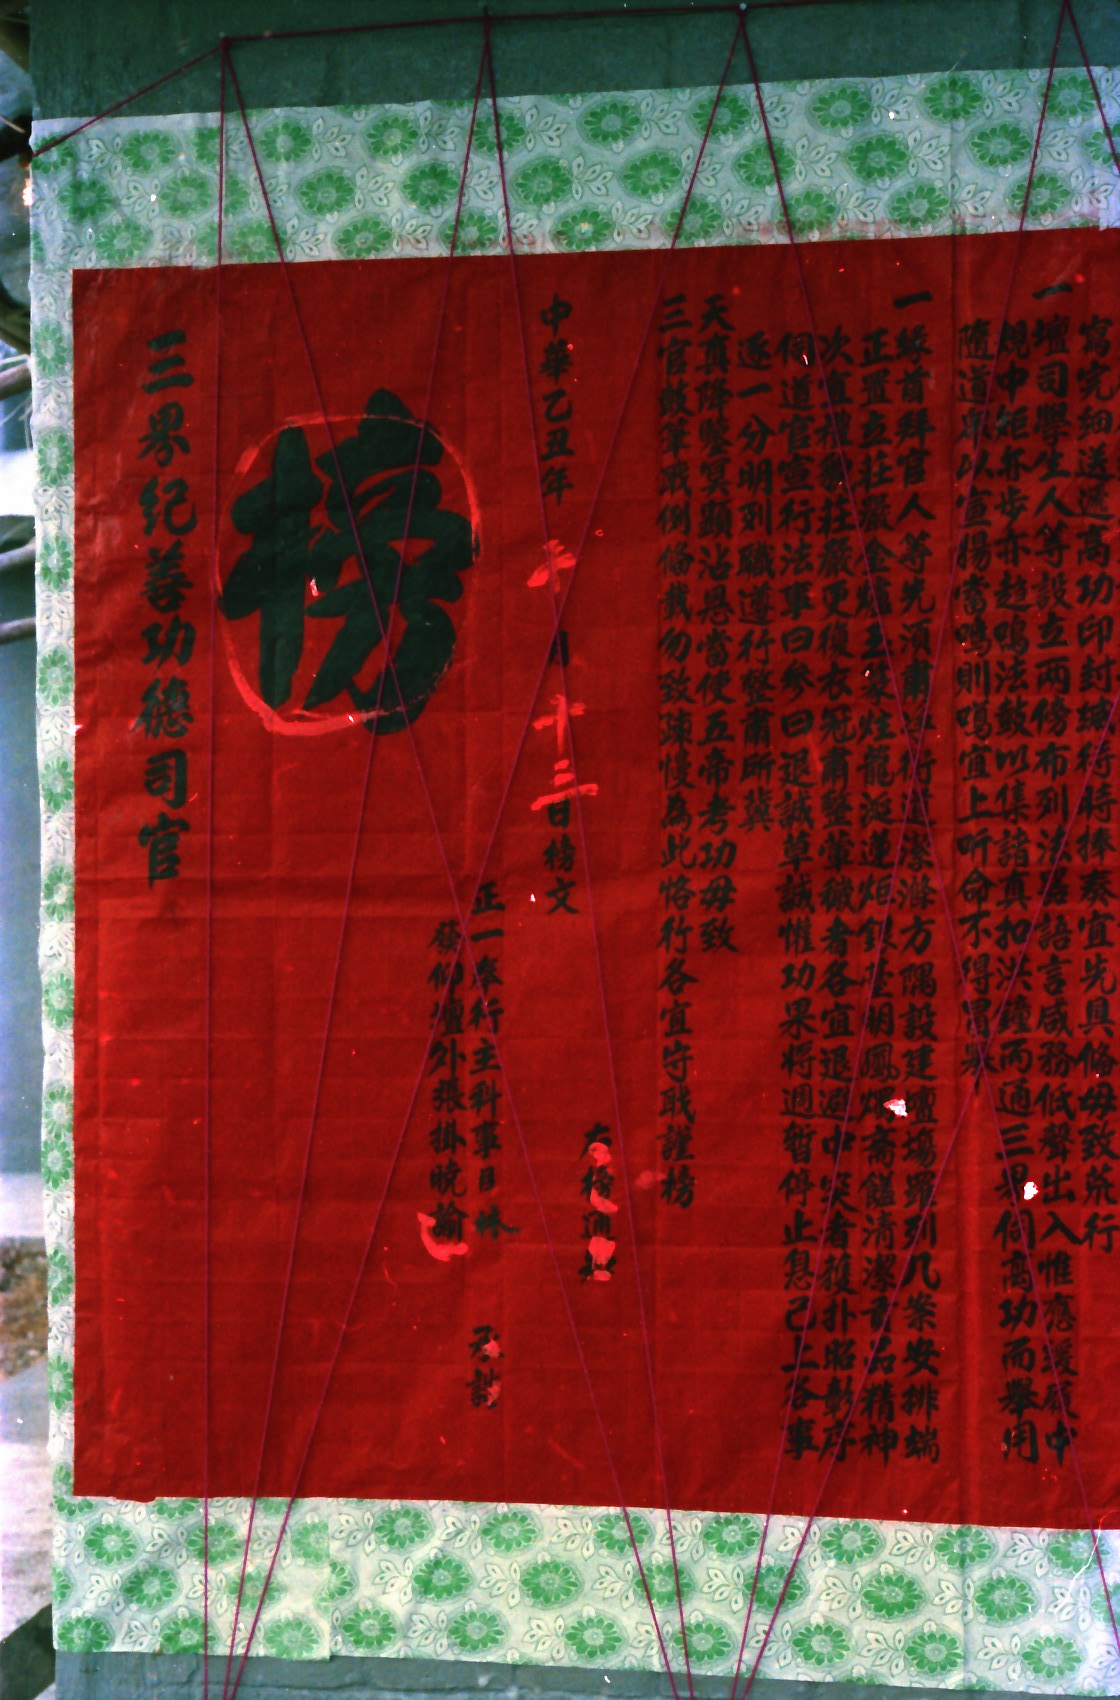 寫完細送遞高功印封
奏宜先具
毋致
行
一壇司學生人等設立兩傍布列法
語言咸務低聲出入惟應緩
中
規中矩亦步亦趨鳴法鼓以集諸真扣洪鐘而通三界伺高功而舉用
隨道眾以宣揚當鳴則鳴宜上听命不得
一緣首拜官人等先須肅
方隅設建壇場羅列几案安排端
正置立莊嚴金爐玉
炷龍涎蓮炬銀臺明鳳燭齋饈清潔
品精神
次直禮
莊嚴更復衣冠肅整葷穢者各宜退
中突者
扑昭彰
伺道官宣行法事曰參曰退誠草誠惶功果將週暫停止息己上各事
逐一分明列職遵行整肅所冀
天真降鑒冥顯沾恩當使五帝考功毋致
三官鼓筆戢倒條截勿致疎慢為此恪行各宜守戢謹榜
右榜通
中華乙丑年
月十三日榜文
正一奉行主科事目林
承誥
發仰壇外張掛曉諭
榜
三界紀善功德司官